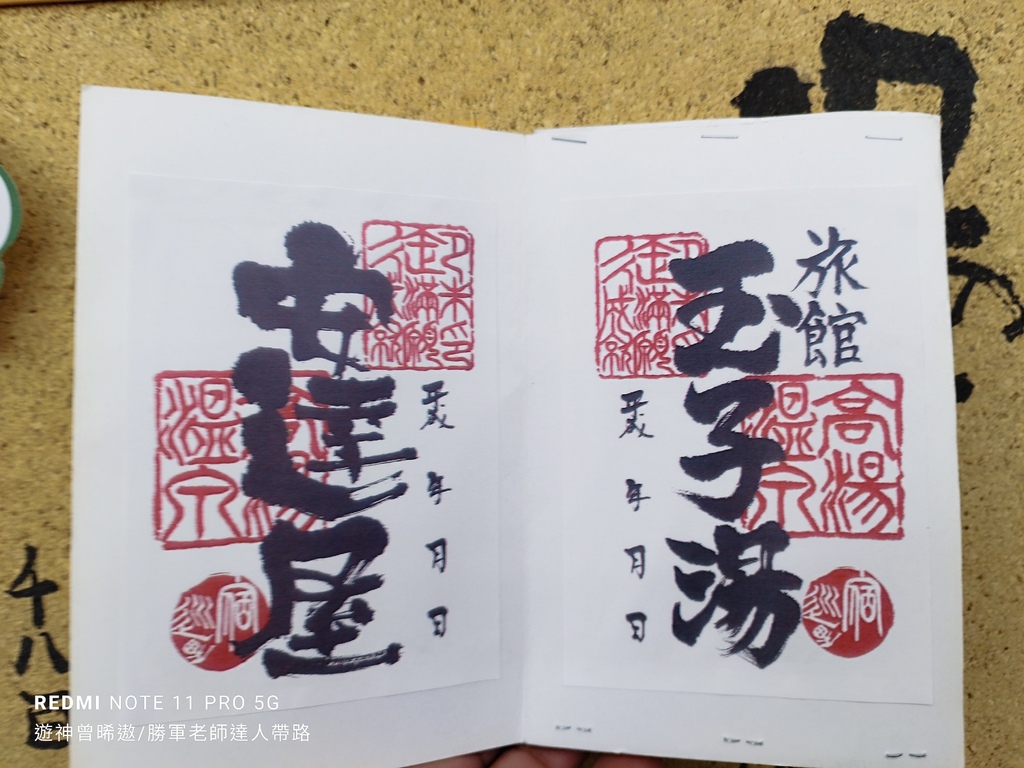 旅館
玉子湯
高湯
温泉
平成
年
月
日
安達屋
平成
年
月
日
千八百
REDMI NOTE 11 PRO 5G
遊神曾晞遨/勝軍老師達人帶路